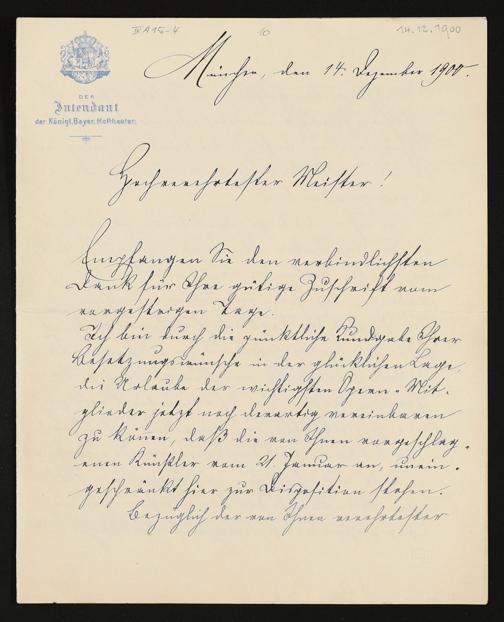 III A 15-4
10
14.12.1900
DER
Intendant
der Königl. Bayer. Hoftheater.
München, den 14. Dezember 1900.
Hochverehrtester Meister!
Empfangen Sie den verbindlichsten
Dank für Ihre gütige Zuschrift vom
vorgestrigen Tage.
Ich bin durch die pünktliche Kundgabe Ihrer
Besetzungswünsche in der glücklichen Lage,
die Urlaube der wichtigsten Opern-Mit-
glieder jetzt noch derartig vereinbaren
zu könen, daß die von Ihnen vorgeschlag-
enen Künstler vom 21. Januar an, unein-
geschränkt hier zur Disposition stehen.
Bezüglich der von Ihnen verehrtester